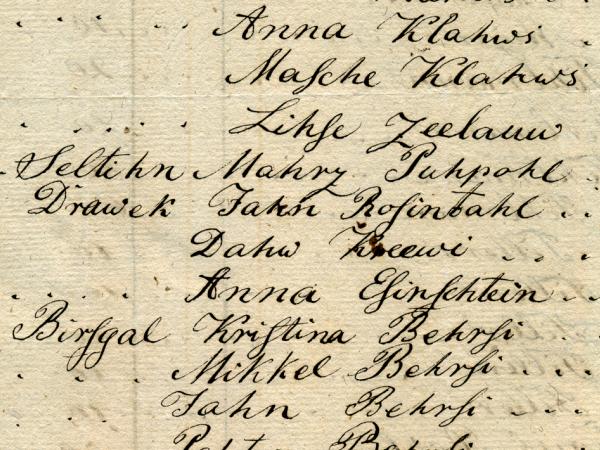 Anna Klahwi
Masche Klahwi
Lihse Zeelauw
Seltihn Mahrz Puhpohl
Drawek Jahn Rosintahl
Dahw Kreewi
Anna Esinschtein
Birsgal Kristina Behrsi
Mikkel Behrsi
Jahn Behrsi